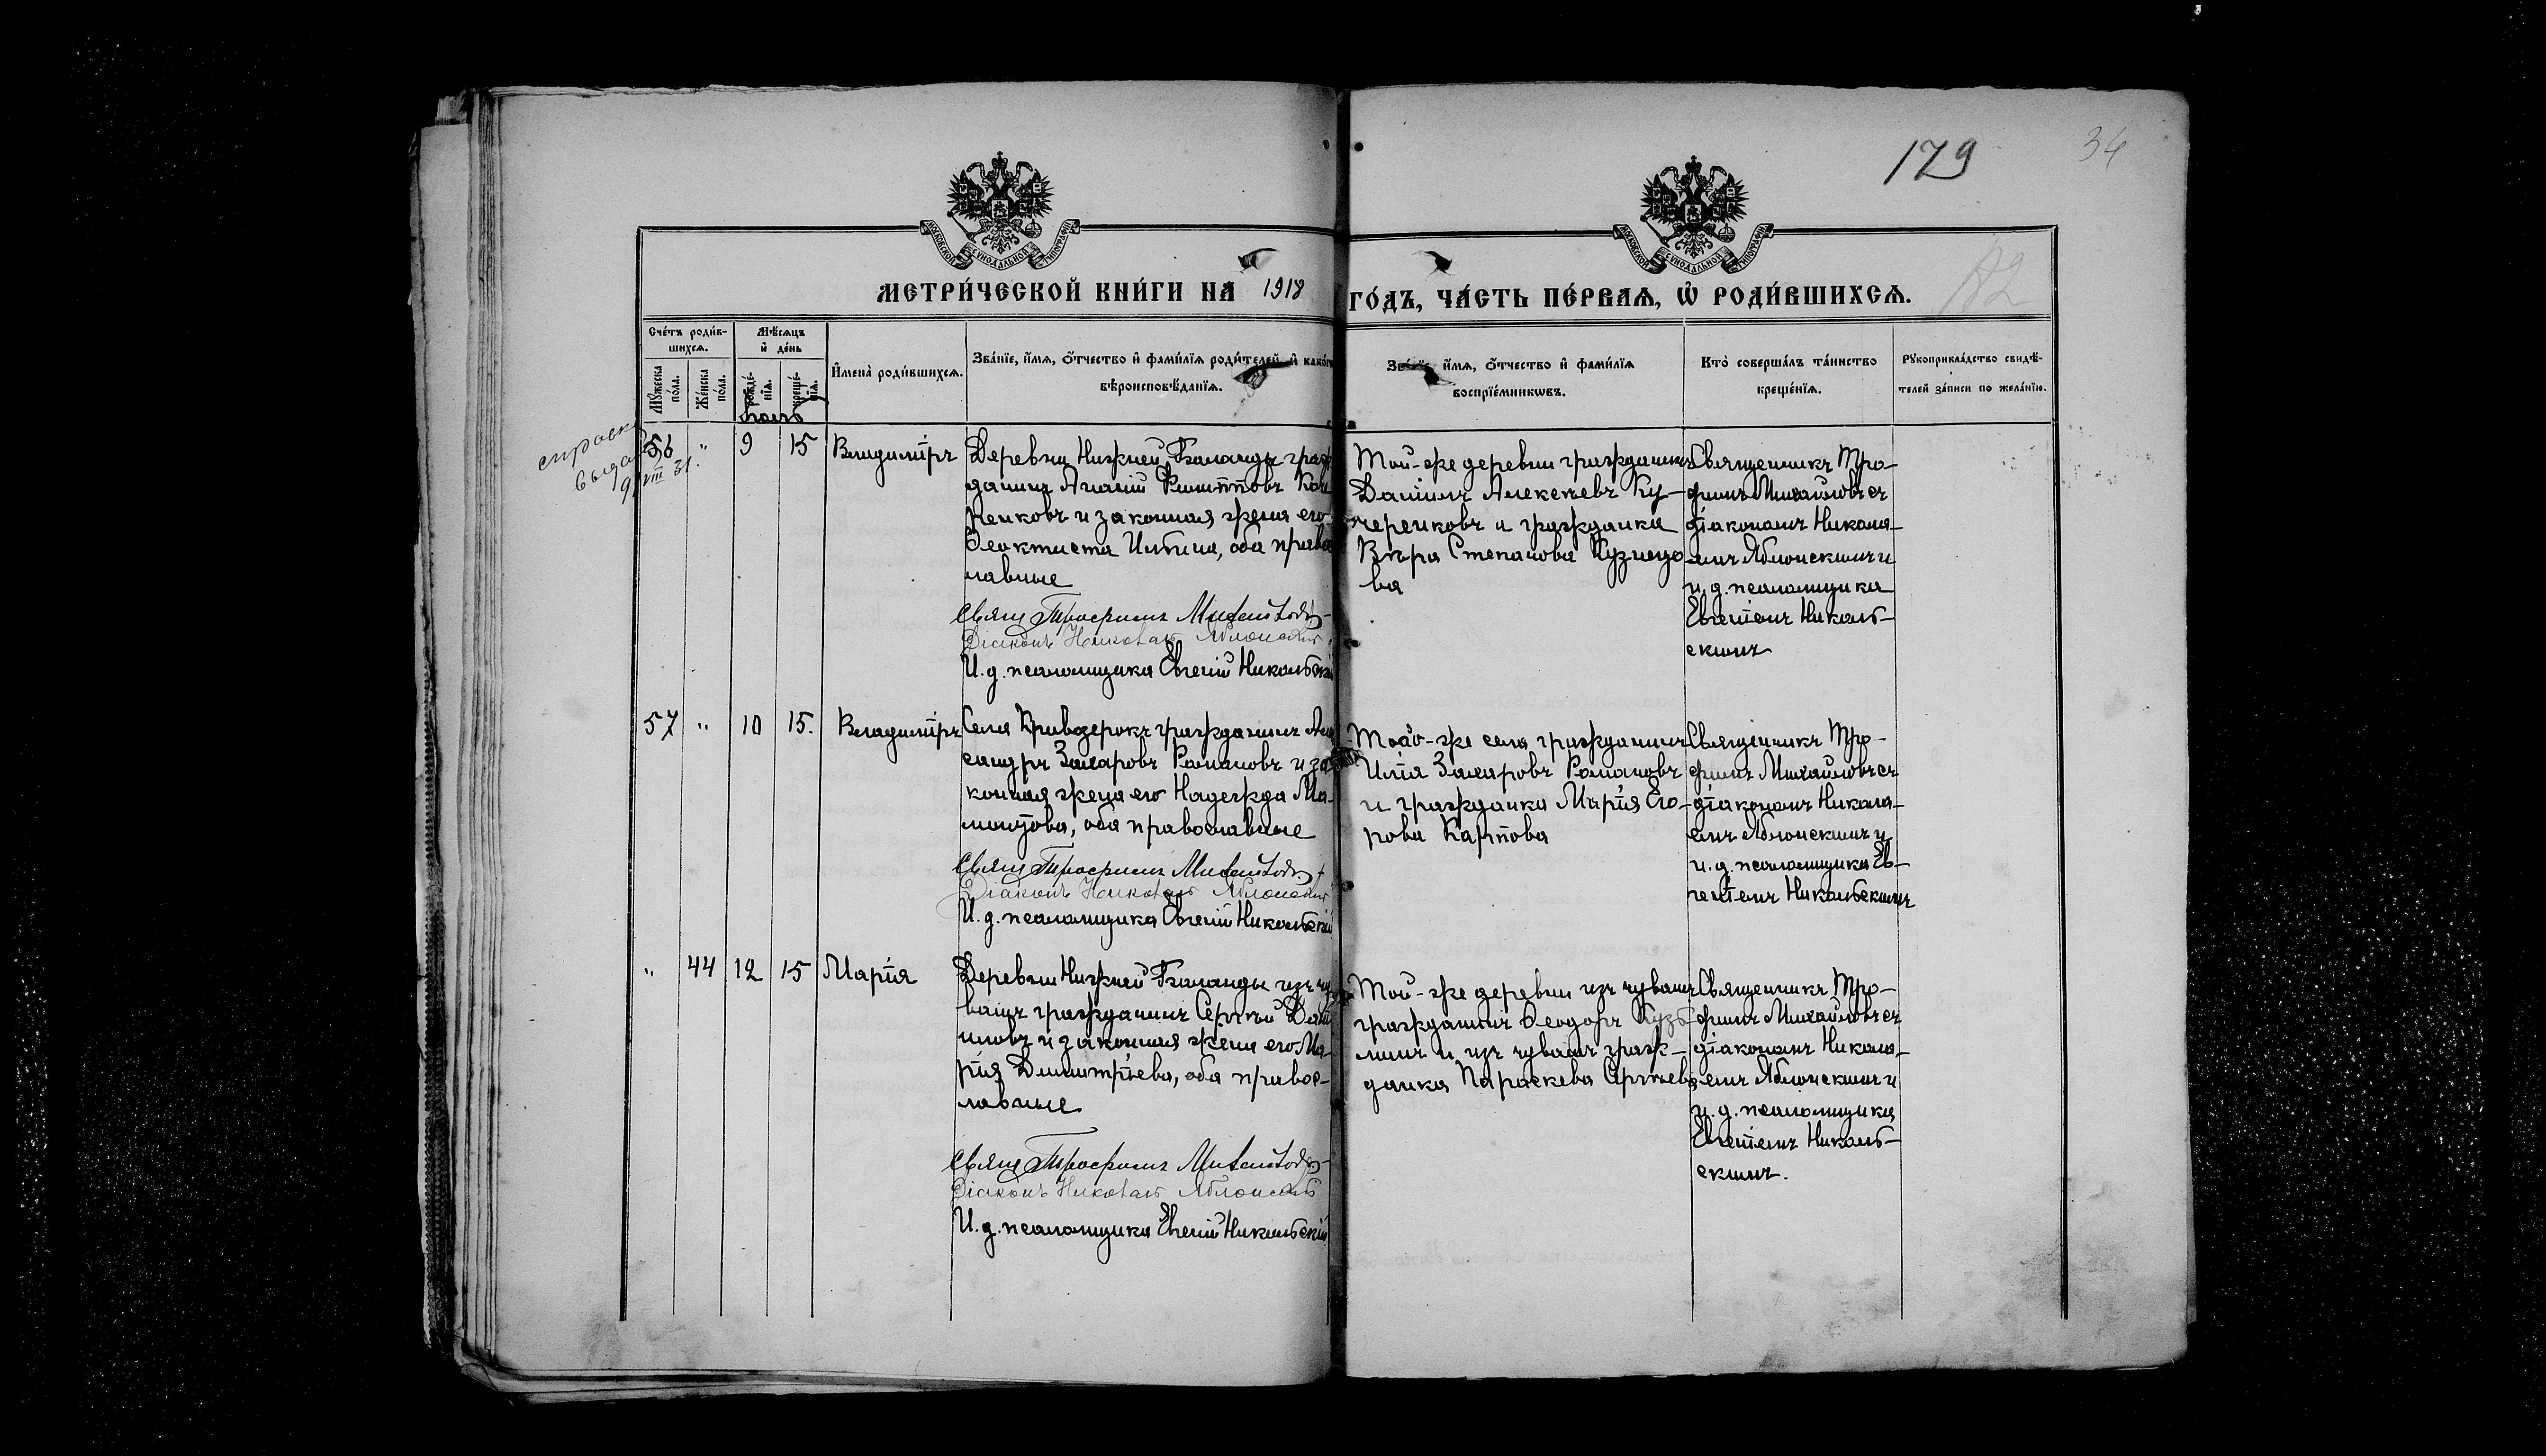 179
34
МОСКОВСКОЙ СѴНОДАЛЬНОЙ ТИПОГРАФІИ
МОСКОВСКОЙ СѴНОДАЛЬНОЙ ТИПОГРАФІИ
МЕТРИ́ЧЕСКОЙ КНИ́ГИ НА 1918 ГО́ДЪ, ЧА́СТЬ ПЕ́РВАѦ, Ѡ҆ РОДИ́ВШИХСѦ.
Сче́тъ роди́в-
шихсѧ.
Мꙋ́жеска по́ла.
Же́нска по́ла.
Мѣ́сѧцъ и҆ де́нь
рожде́-
нїѧ.
креще́-
нїѧ.
И҆мена̀ роди́вшихсѧ.
Зва́нїе, и҆́мѧ, ѻ҆́тчество и҆ фами́лїѧ роди́телей, и҆ како́гѡ
вѣ̈роисповѣ́данїѧ.
Зва́нїе, и҆́мѧ, ѻ҆́тчество и҆ фами́лїѧ
воспрїе́мникѡвъ.
Кто̀ соверша́лъ та́инство
креще́нїѧ.
Рꙋкоприкла́дство свидѣ́-
телей за́писи по жела́нїю.
Іюль
справка
выдана
VIII 31.
56 " 9 15 Владиміръ
Деревни Нижней Баланды граж
данинъ Агаѳій Филипповъ Коч
Ѳеоктиста Ильина, оба право
лавные
Свящ Трофимъ Михайловъ
Діаконъ Николай Яблонскій
И. д. псаломщика Евгеній Никольскій
Той-же деревни гражданинъ
Даніилъ Алексѣевъ Ку-
черенковъ и гражданка
Вѣра Степанова Кузнецо
ва
Священникъ Тро-
фимъ Михайловъ съ
діакономъ Никола-
емъ Яблонскимъ и
и. д. псаломщика
Евгеніемъ Николь-
скимъ
57 " 10 15. Владиміръ
Села Кривоозерокъ гражданинъ Алек
сандръ Захаровъ Романовъ и за
конная жена его Надежда Ма-
монтова, оба православные
Свящ Трофимъ Михайловъ
Діаконъ Николай Яблонскій
И. д. псаломщика Евгеній Никольскій
Того-же села гражданинъ
Илія Захаровъ Романовъ
и гражданка Марія Его-
рова Карпова
Священникъ Тро-
фимъ Михайловъ съ
діакономъ Никола-
емъ Яблонскимъ и
и. д. псаломщика Ев-
геніемъ Никольскимъ
" 44 12 15 Марія
Деревни Нижней Баланды изъ чу
вашъ гражданинъ Сергѣй Дані
иловъ и законная жена его Ма-
рія Димитріева, оба правос-
лавные
Свящ Трофимъ Михайловъ
Діаконъ Николай Яблонскій
И. д. псаломщика Евгеній Никольскій
Той-же деревни изъ чувашъ
гражданинъ Ѳеодоръ Кузь
минъ и изъ чувашъ граж-
данка Параскева Сергѣева
Священникъ Тро-
фимъ Михайловъ съ
діакономъ Никола-
емъ Яблонскимъ и
и. д. псаломщика
Евгеніемъ Николь-
скимъ.